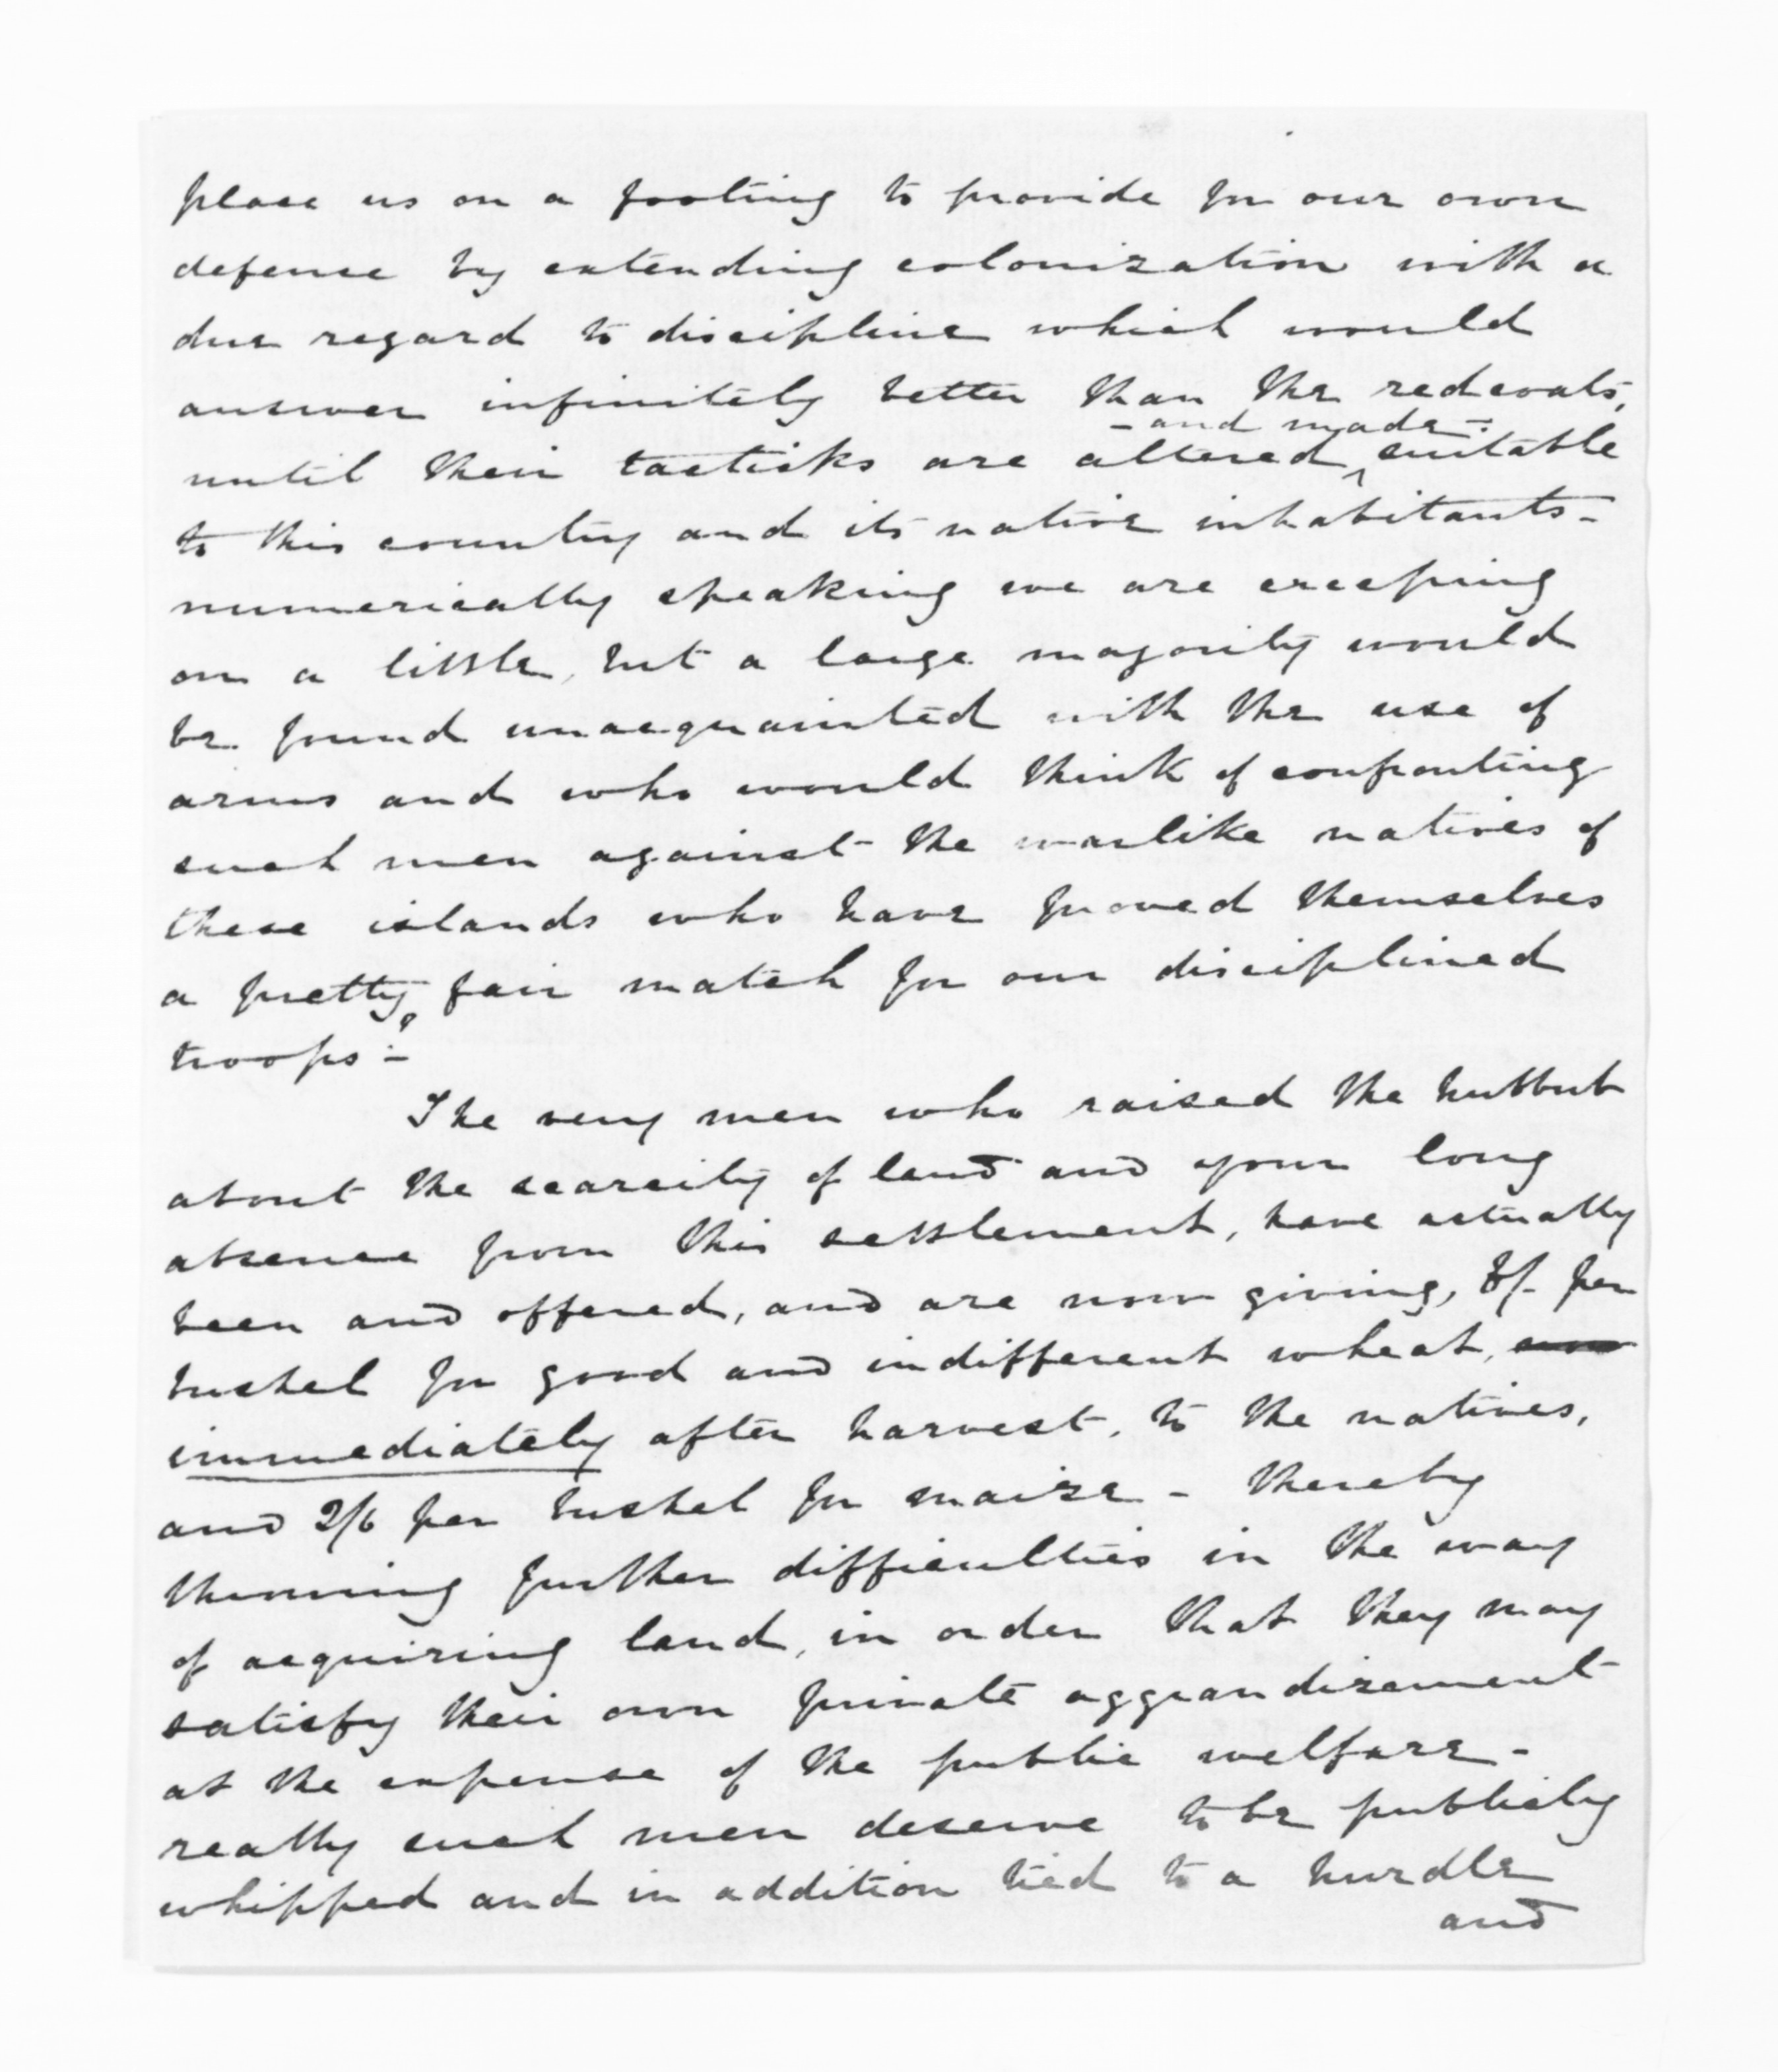 place us on a footing to provide for our own
defense by extending colonization with a
due regard to discipline which would
answer infinitely better than the redcoats,
- and made -
until their tacticks are altered ^ suitable
to this country and its native inhabitants -
numerically speaking we are creeping
on a little, but a large majority would
be found unacquainted with the use of
arms and who would think of confronting
such men against the warlike natives of
these islands who have proved themselves
a pretty fair match for our disciplined
troops ? -
The very men who raised the hubbub
about the scarcity of land and your long
absence from this settlement, have actually
been and offered, and are now giving, per
bushel for good and indifferent wheat,
immediately after harvest, to the natives,
and 2/6 per bushel for maize - thereby
throwing further difficulties in the way
of acquiring land, in order that they may
satisfy their own private aggrandizement
at the expense of the public welfare -
really such men deserve to be publicly
whipped and in addition tied to a hurdle
and